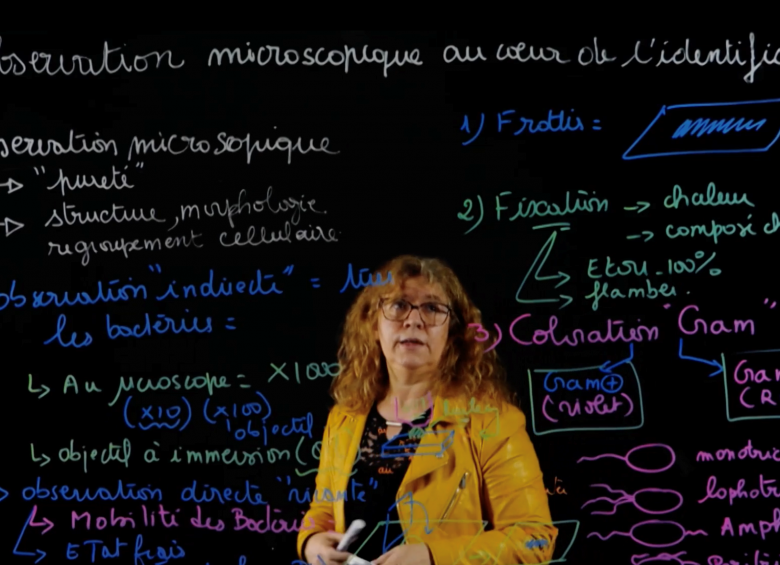 bservation microscopique au cœur de l'identific
servation microsopique
→ "pureté"
→ structure, morphologie
regroupement cellulaire
observation "indirecte" =
les bactéries =
↳ Au microscope = X1000
(x10) (x100)
objectif
↳ objectif à immersion (
observation directe "vivante"
↳ Mobilité des Bactérie
↳ ETat frais
1) Frottis =
2) Fixation → chaleur
→ composé ch
EtOH - 100%
flamber.
3) Coloration "Gram"
Gram⊕
(violet)
Gra
(R
monotric
lophotr
Amph